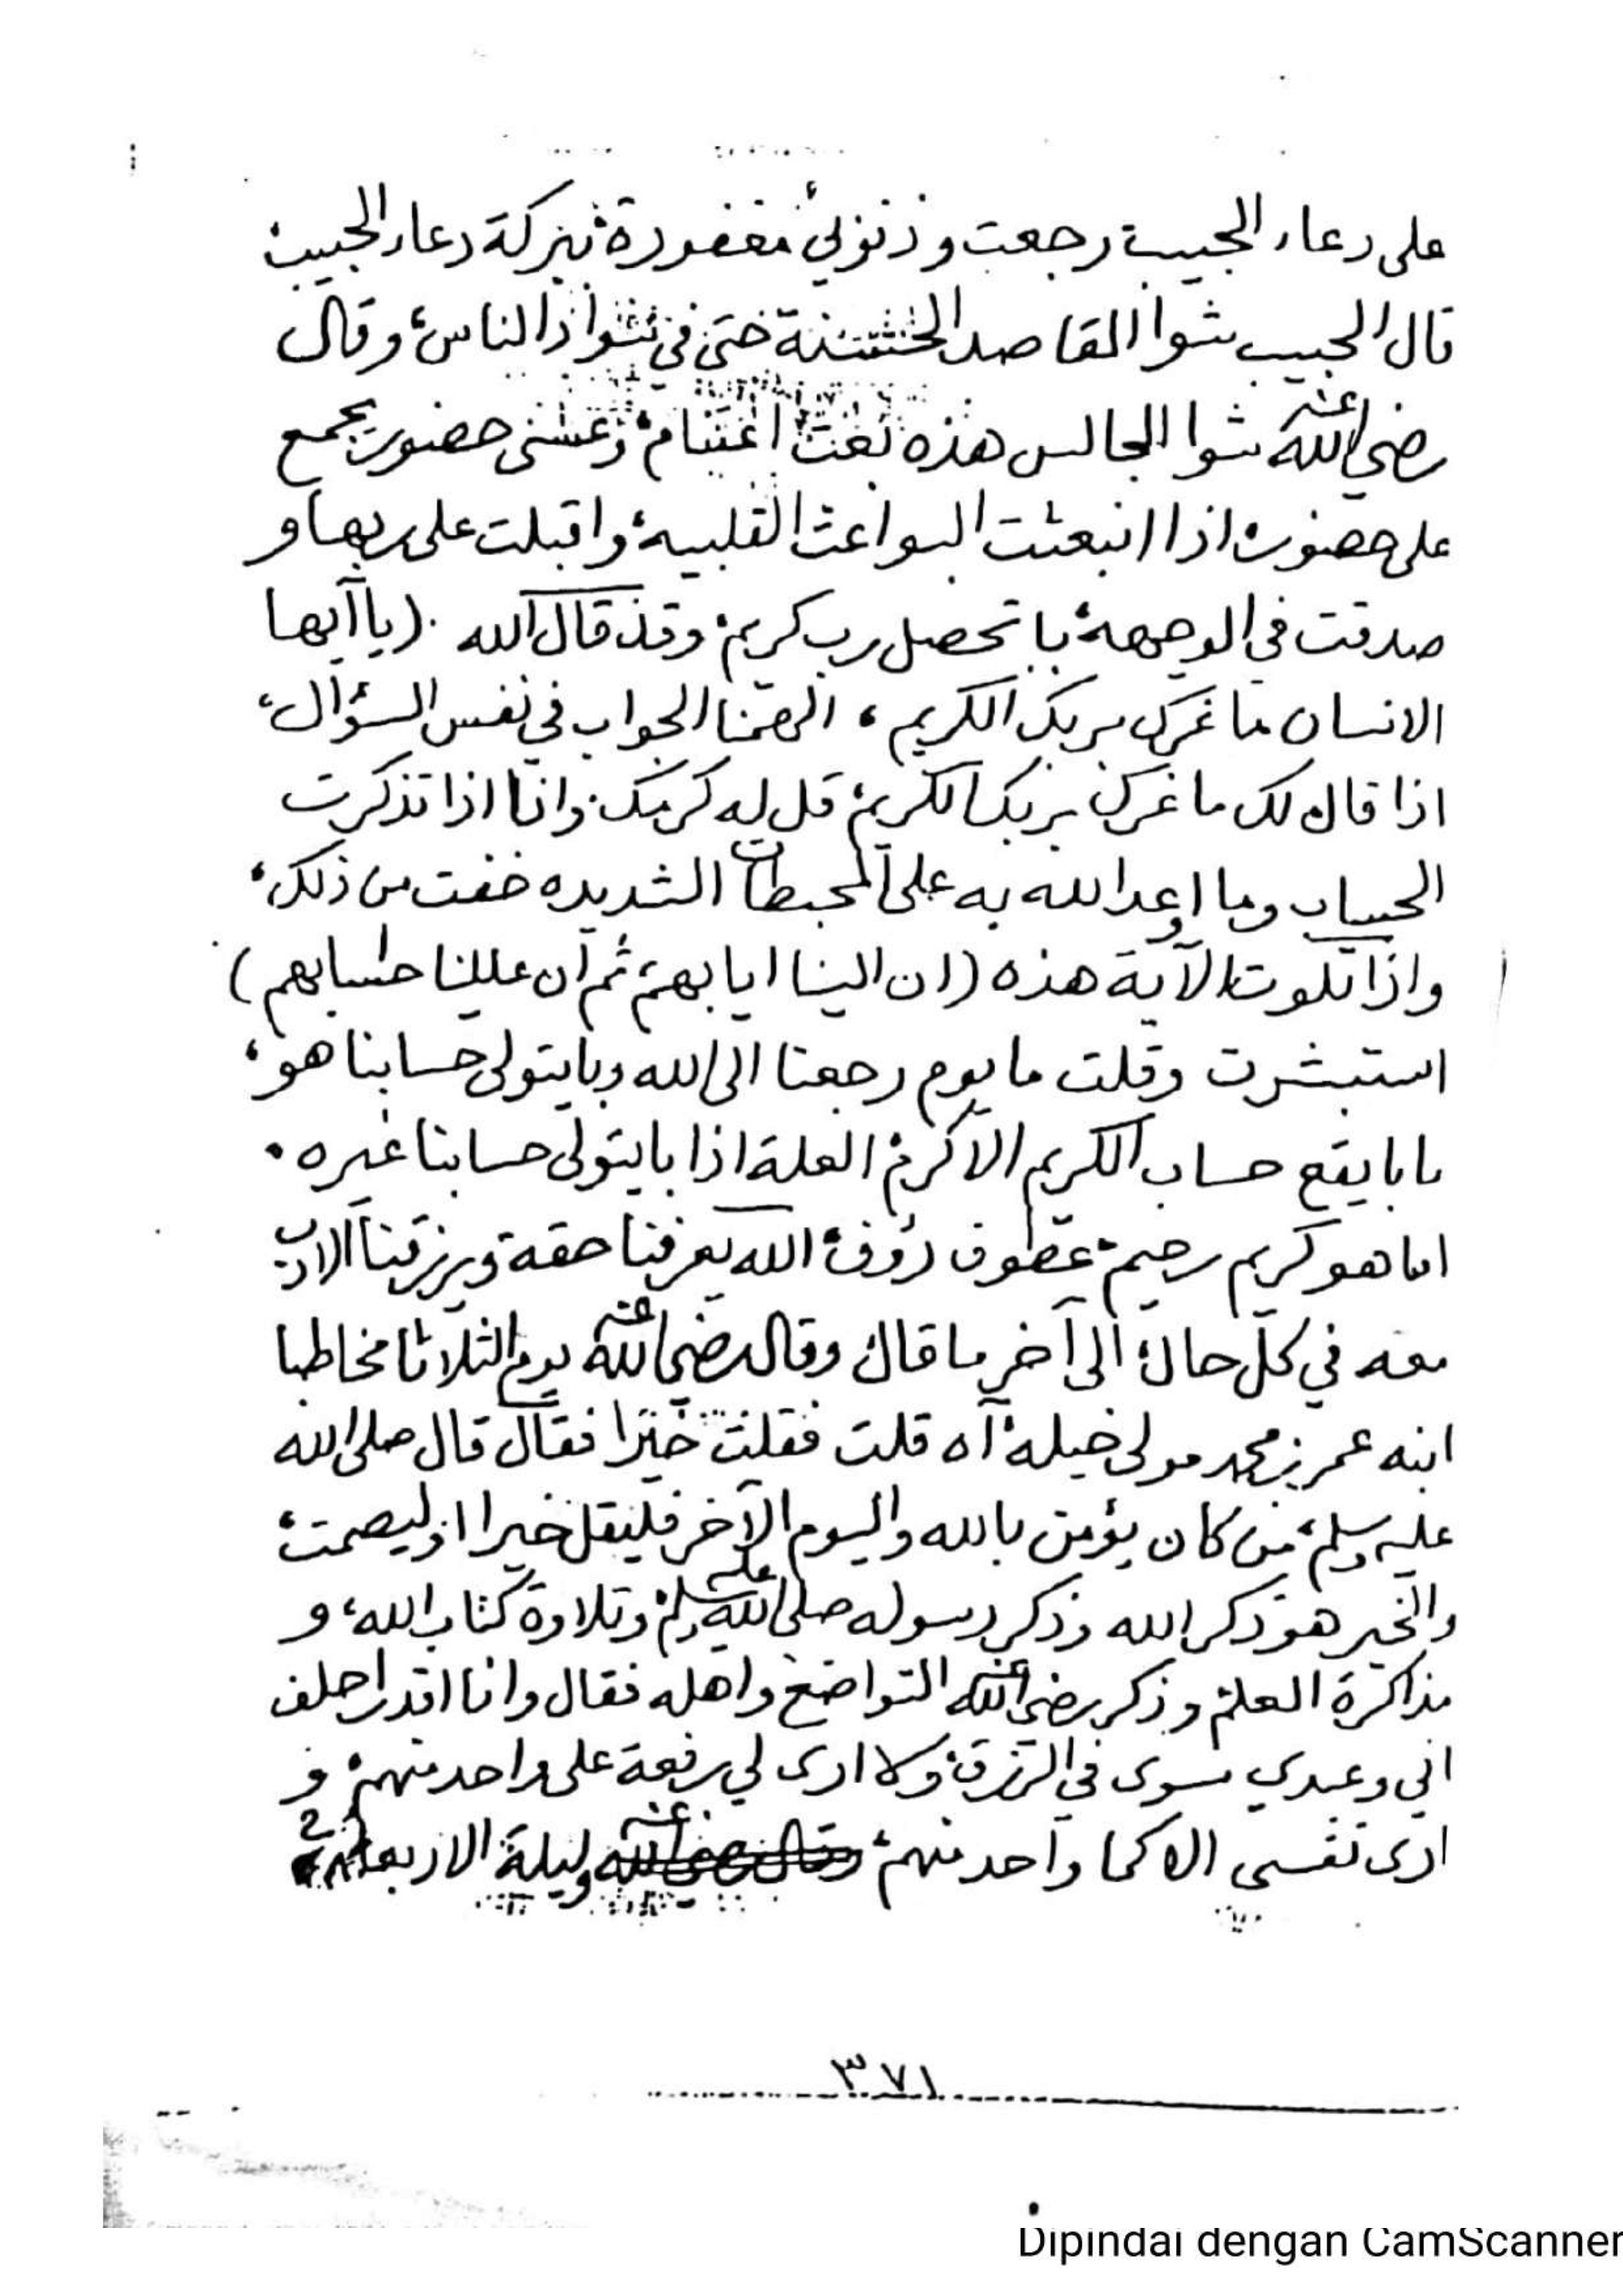 على دعاء الحبيب رجعت وذنوبي مغفورة ببركة دعاء الحبيب
قال الحبيب شوا المقاصد الحسنة حتى في شواذ الناس، وقال
رضي الله عنه شوا المجالس هذه اغتنام، حضور يجمع
على حضور، اذا انبعثت البواعث القلبية، واقبلت على ربها و
صدقت في الوجهة، با تحصل رب كريم، وقد قال الله (يا أيها
الانسان ما غرك بربك الكريم، الهمنا الجواب في نفس السؤال،
اذا قال لك ما غرك بربك الكريم، قل له كرمك. وانا اذا تذكرت
الحساب وما اوعد الله به على المحبطات الشديده خفت من ذلك،
واذا تلوت الآية هذه (ان الينا ايابهم ثم ان علينا حسابهم)
استبشرت وقلت ما يوم رجعنا الى الله وبايتولى حسابنا هو،
ما با يقع حساب الكريم الا كرم، العلة اذا بايتولى حسابنا غيره.
اما هو كريم رحيم، عطوف رؤف، الله يعرفنا حقه ويرزقنا الادب
معه في كل حال، الى آخر ما قال، وقال رضي الله عنه يوم الثلاثا مخاطبا
ابنه عمر بن محمد مولى خيله، آه قلت فقلت خيرا فقال قال صلى الله
عليه وسلم، من كان يؤمن بالله واليوم الآخر فليقل خيرا او ليصمت،
والخير هو ذكر الله وذكر رسوله صلى الله عليه وسلم، وتلاوة كتاب الله، و
مذاكرة العلم، وذكر رضي الله عنه التواضع واهله فقال وانا اقدر احلف
اني وعبدي سوى في الرزق، ولا ارى لي رفعة على واحد منهم، و
ارى نفسي الا كما واحد منهم، وليلة الاربعاء
٣٧١
Dipindai dengan CamScanner